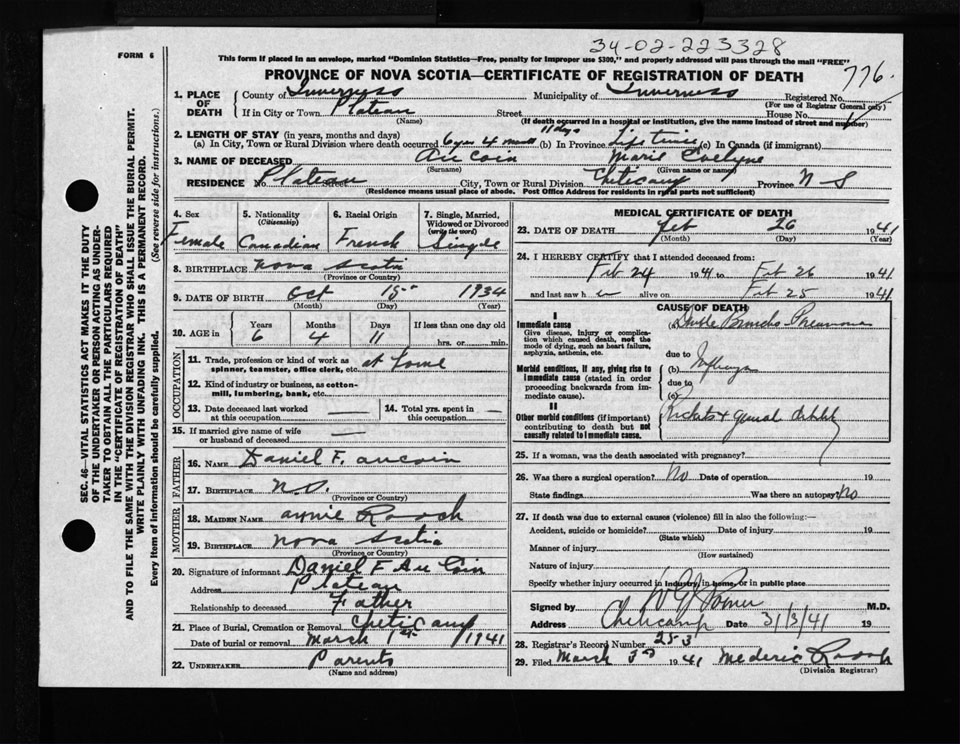 34-02-223328
FORM 6
This form if placed in an envelope, marked "Dominion Statistics—Free, penalty for improper use $300," and properly addressed will pass through the mail "FREE"
776.
PROVINCE OF NOVA SCOTIA—CERTIFICATE OF REGISTRATION OF DEATH
1. PLACE OF DEATH
County of Inverness Municipality of Inverness Registered No.
(For use of Registrar General only)
If in City or Town Plateau Street House No.
(Name) (If death occurred in a hospital or institution, give the name instead of street and number)
2. LENGTH OF STAY (in years, months and days) 11 days
(a) In City, Town or Rural Division where death occurred 6 yrs 4 mos (b) In Province Life time (c) In Canada (if immigrant)
3. NAME OF DECEASED Au Coin Marie Evelyne
(Surname) (Given name or names)
RESIDENCE No. Plateau Street City, Town or Rural Division Cheticamp Province N S
(Residence means usual place of abode. Post Office Address for residents in rural parts not sufficient)
4. Sex 5. Nationality (Citizenship) 6. Racial Origin 7. Single, Married, Widowed or Divorced (write the word)
Female Canadian French Single
8. BIRTHPLACE Nova Scotia
(Province or Country)
9. DATE OF BIRTH Oct 15 1934
(Month) (Day) (Year)
10. AGE in Years Months Days If less than one day old
6 4 11 hrs. or min.
OCCUPATION
11. Trade, profession or kind of work as spinner, teamster, office clerk, etc. at home
12. Kind of industry or business, as cotton-mill, lumbering, bank, etc.
13. Date deceased last worked at this occupation —
14. Total yrs. spent in this occupation —
15. If married give name of wife or husband of deceased —
FATHER
16. NAME Daniel F. Aucoin
17. BIRTHPLACE N.S.
(Province or Country)
MOTHER
18. MAIDEN NAME Annie Roach
19. BIRTHPLACE Nova Scotia
(Province or Country)
20. Signature of informant Daniel F Au Coin
Address Plateau
Relationship to deceased Father
21. Place of Burial, Cremation or Removal Cheticamp
Date of burial or removal March 1st 1941
22. UNDERTAKER Parents
(Name and address)
MEDICAL CERTIFICATE OF DEATH
23. DATE OF DEATH Feb 26 1941
(Month) (Day) (Year)
24. I HEREBY CERTIFY that I attended deceased from:
Feb 24 1941 to Feb 26 1941
and last saw h er alive on Feb 25 1941
CAUSE OF DEATH
I
Immediate cause
Give disease, injury or complication which caused death, not the mode of dying, such as heart failure, asphyxia, asthenia, etc.
(a) Double Broncho Pneumonia
due to
Morbid conditions, if any, giving rise to immediate cause (stated in order proceeding backwards from immediate cause).
(b) Influenza
due to
(c)
II
Other morbid conditions (if important) contributing to death but not causally related to immediate cause.
Rickets & general debility
25. If a woman, was the death associated with pregnancy?
26. Was there a surgical operation? No Date of operation 19
State findings Was there an autopsy? No
27. If death was due to external causes (violence) fill in also the following:—
Accident, suicide or homicide? Date of injury 19
(State which)
Manner of injury
(How sustained)
Nature of injury
Specify whether injury occurred in industry, in home, or in public place
Signed by M.D.
Address Cheticamp Date 31/3/41 19
28. Registrar's Record Number 253
29. Filed March 3rd 1941 Mederic Roach
(Division Registrar)
SEC. 46—VITAL STATISTICS ACT MAKES IT THE DUTY
OF THE UNDERTAKER OR PERSON ACTING AS UNDER-
TAKER TO OBTAIN ALL THE PARTICULARS REQUIRED
IN THE "CERTIFICATE OF REGISTRATION OF DEATH"
AND TO FILE THE SAME WITH THE DIVISION REGISTRAR WHO SHALL ISSUE THE BURIAL PERMIT.
WRITE PLAINLY WITH UNFADING INK. THIS IS A PERMANENT RECORD.
Every item of information should be carefully supplied. (See reverse side for instructions.)